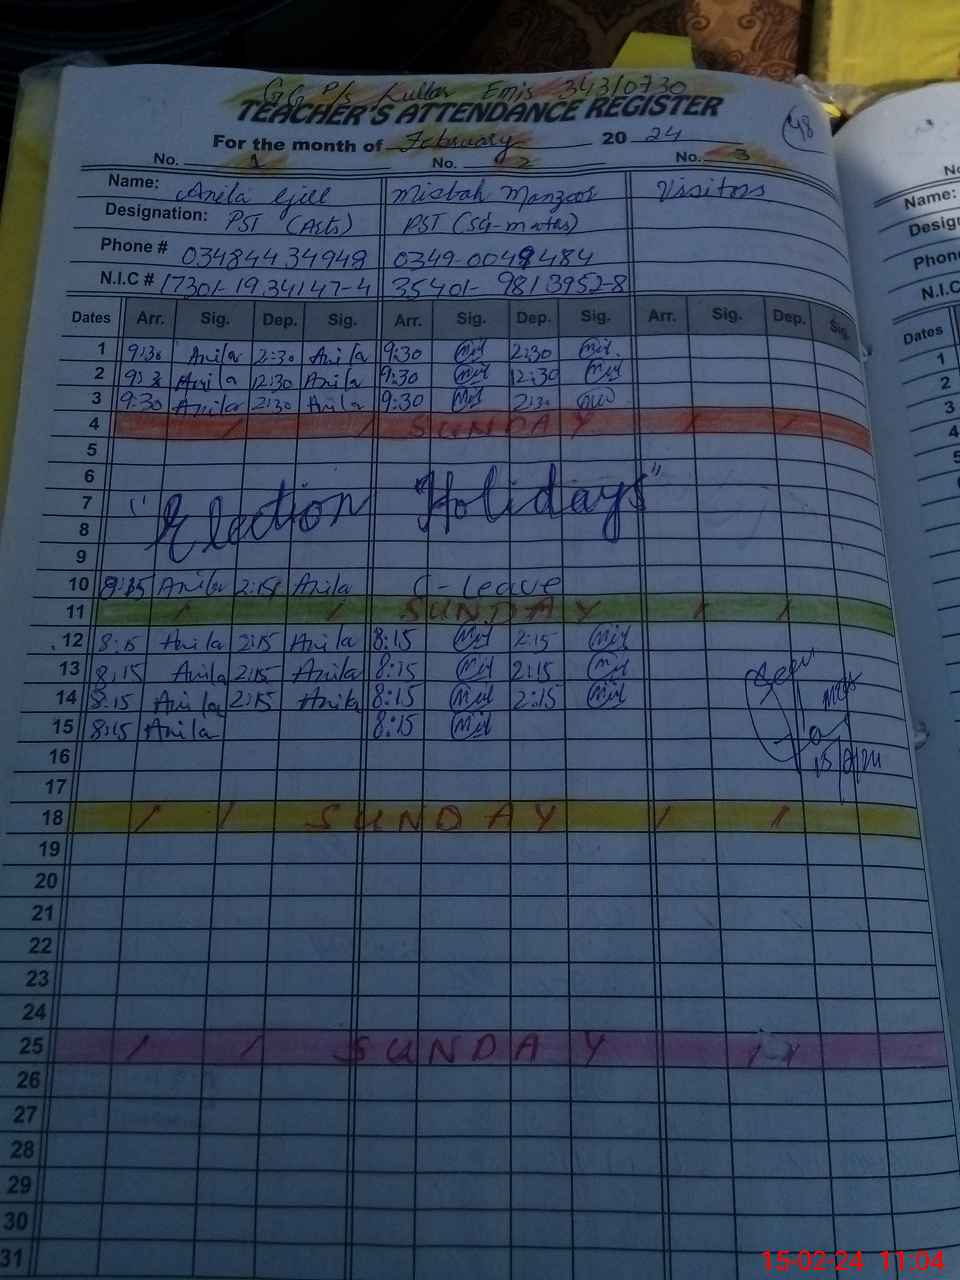 GG P/s Kullar Emis 34310730
TEACHER'S ATTENDANCE REGISTER
48
For the month of February 2024
No. 1 No. 2 No. 3
Name: Anila Gill Misbah Manzoor Visitors
Designation: PST (Arts) PST (Sci-maths)
Phone # 03484434948 0349-0049484
N.I.C # 17301-1934147-4 35401-9813952-8
Dates Arr. Sig. Dep. Sig. Arr. Sig. Dep. Sig. Arr. Sig. Dep. Sig.
1 9:30 Anila 2:30 Anila 9:30 2:30
2 9:3 Anila 12:30 Anila 9:30 12:30
3 9:30 Anila 2:30 Anila 9:30 2:30
4 / / SUNDAY / /
5
6
7 "Election Holidays"
8
9
10 8:15 Anila 2:15 Anila C-Leave
11 / / SUNDAY / /
12 8:15 Anila 2:15 Anila 8:15 2:15
13 8:15 Anila 2:15 Anila 8:15 2:15
14 8:15 Anila 2:15 Anila 8:15 2:15
15 8:15 Anila 8:15
Seen
15/2/24
16
17
18 / / SUNDAY / /
19
20
21
22
23
24
25 / / SUNDAY / /
26
27
28
29
30
31
No
Name:
Design
Phone
N.I.C
Dates
1
2
3
4
5
6
7
8
9
10
11
12
13
14
15
15-02-24 11:04